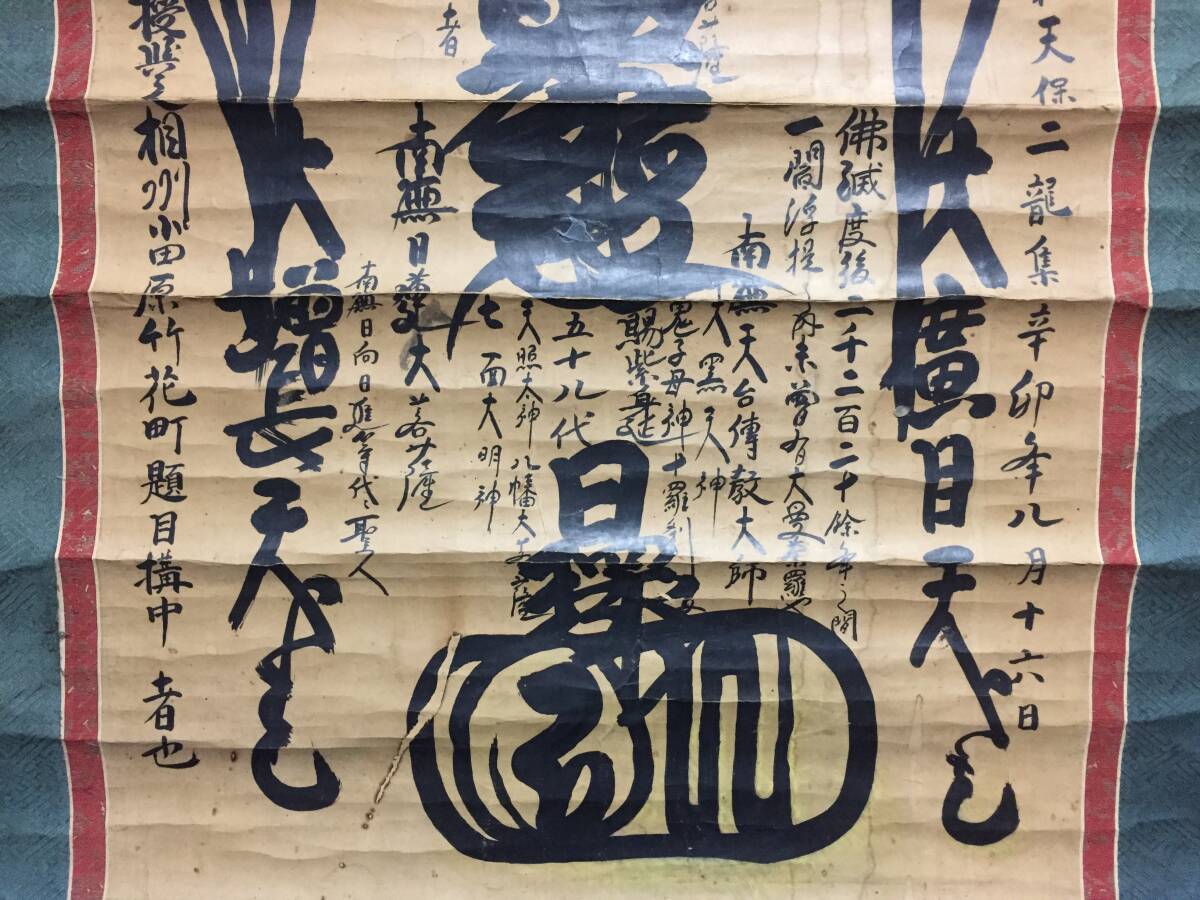 天保二龍集辛卯年八月十六日
大廣目天王
佛滅度後二千二百二十餘年之間
一閻浮提之内未曾有大曼荼羅也
南無天台傳教大師
大黒天神
鬼子母神十羅刹女
賜紫身延
五十八代
日
天照太神八幡大菩薩
七面大明神
南無日蓮大菩薩
南無日向日進等代々聖人
大増長天王
授與之相州小田原竹花町題目講中
者也